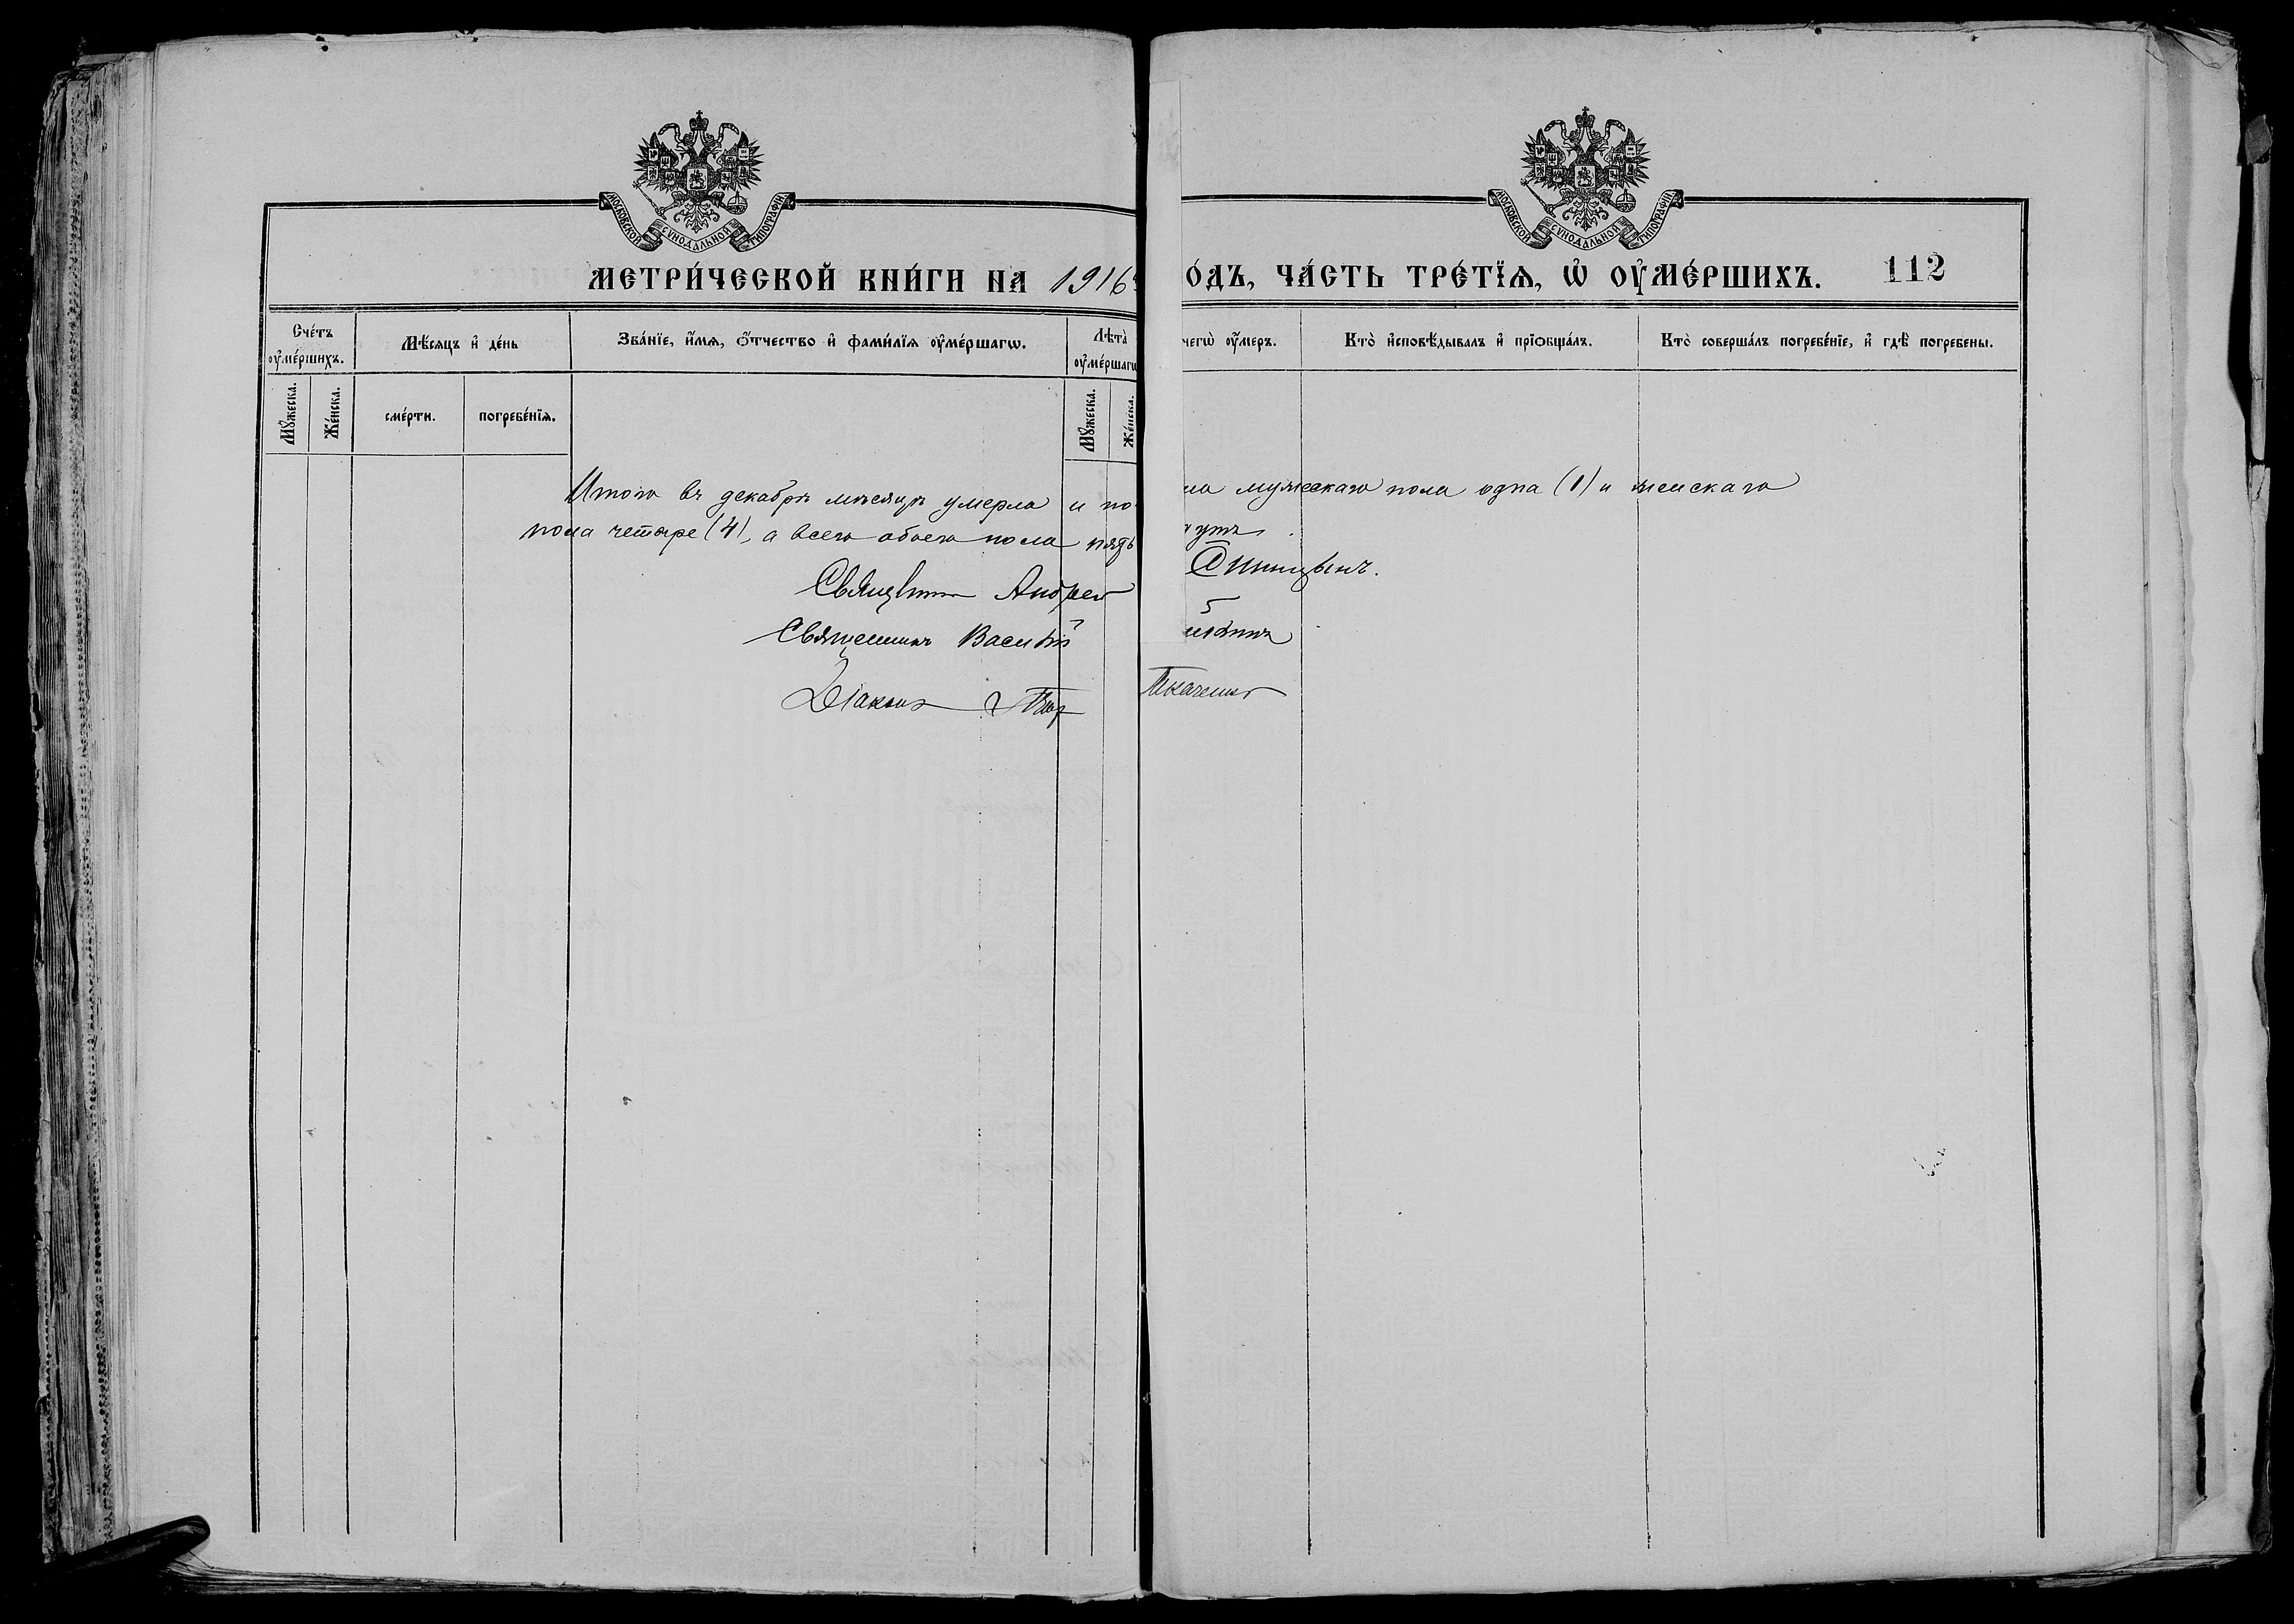 МОСКОВСКОЙ СѴНОДАЛЬНОЙ ТИПОГРАФІИ
МОСКОВСКОЙ СѴНОДАЛЬНОЙ ТИПОГРАФІИ
МЕТРИ́ЧЕСКОЙ КНИ́ГИ НА 1916
ÓДЪ, ЧА́СТЬ ТРЕ́ТЇѦ, Ѡ҆ ОУ҆МЕ́РШИХЪ. 112
Сче́тъ оу҆ме́ршихъ.
Мѣ́сяцъ и҆ де́нь
Зва́нїе, и҆́мѧ, ѻ҆́тчество и҆ фами́лїѧ оу҆ме́ршагѡ.
Лѣ́та̀ оу҆ме́ршагѡ
чегѡ̀ оу҆́меръ.
Кто̀ и҆сповѣ́дывалъ и҆ прїѻбща́лъ.
Кто̀ соверша́лъ погребе́нїе, и҆ гдѣ̀ погребены.
Мꙋ́жеска.
Же́нска.
сме́рти.
погребе́нїѧ.
Мꙋ́жеска.
Же́нска.
Итого въ декабрѣ мѣсяцѣ умерло и по ла мужескаго пола одна (1) и женскаго
пола четыре (4), а всего обоего пола пять
Священникъ Андрей Синицынъ.
Священникъ Василій
Діаконъ Ткаченко